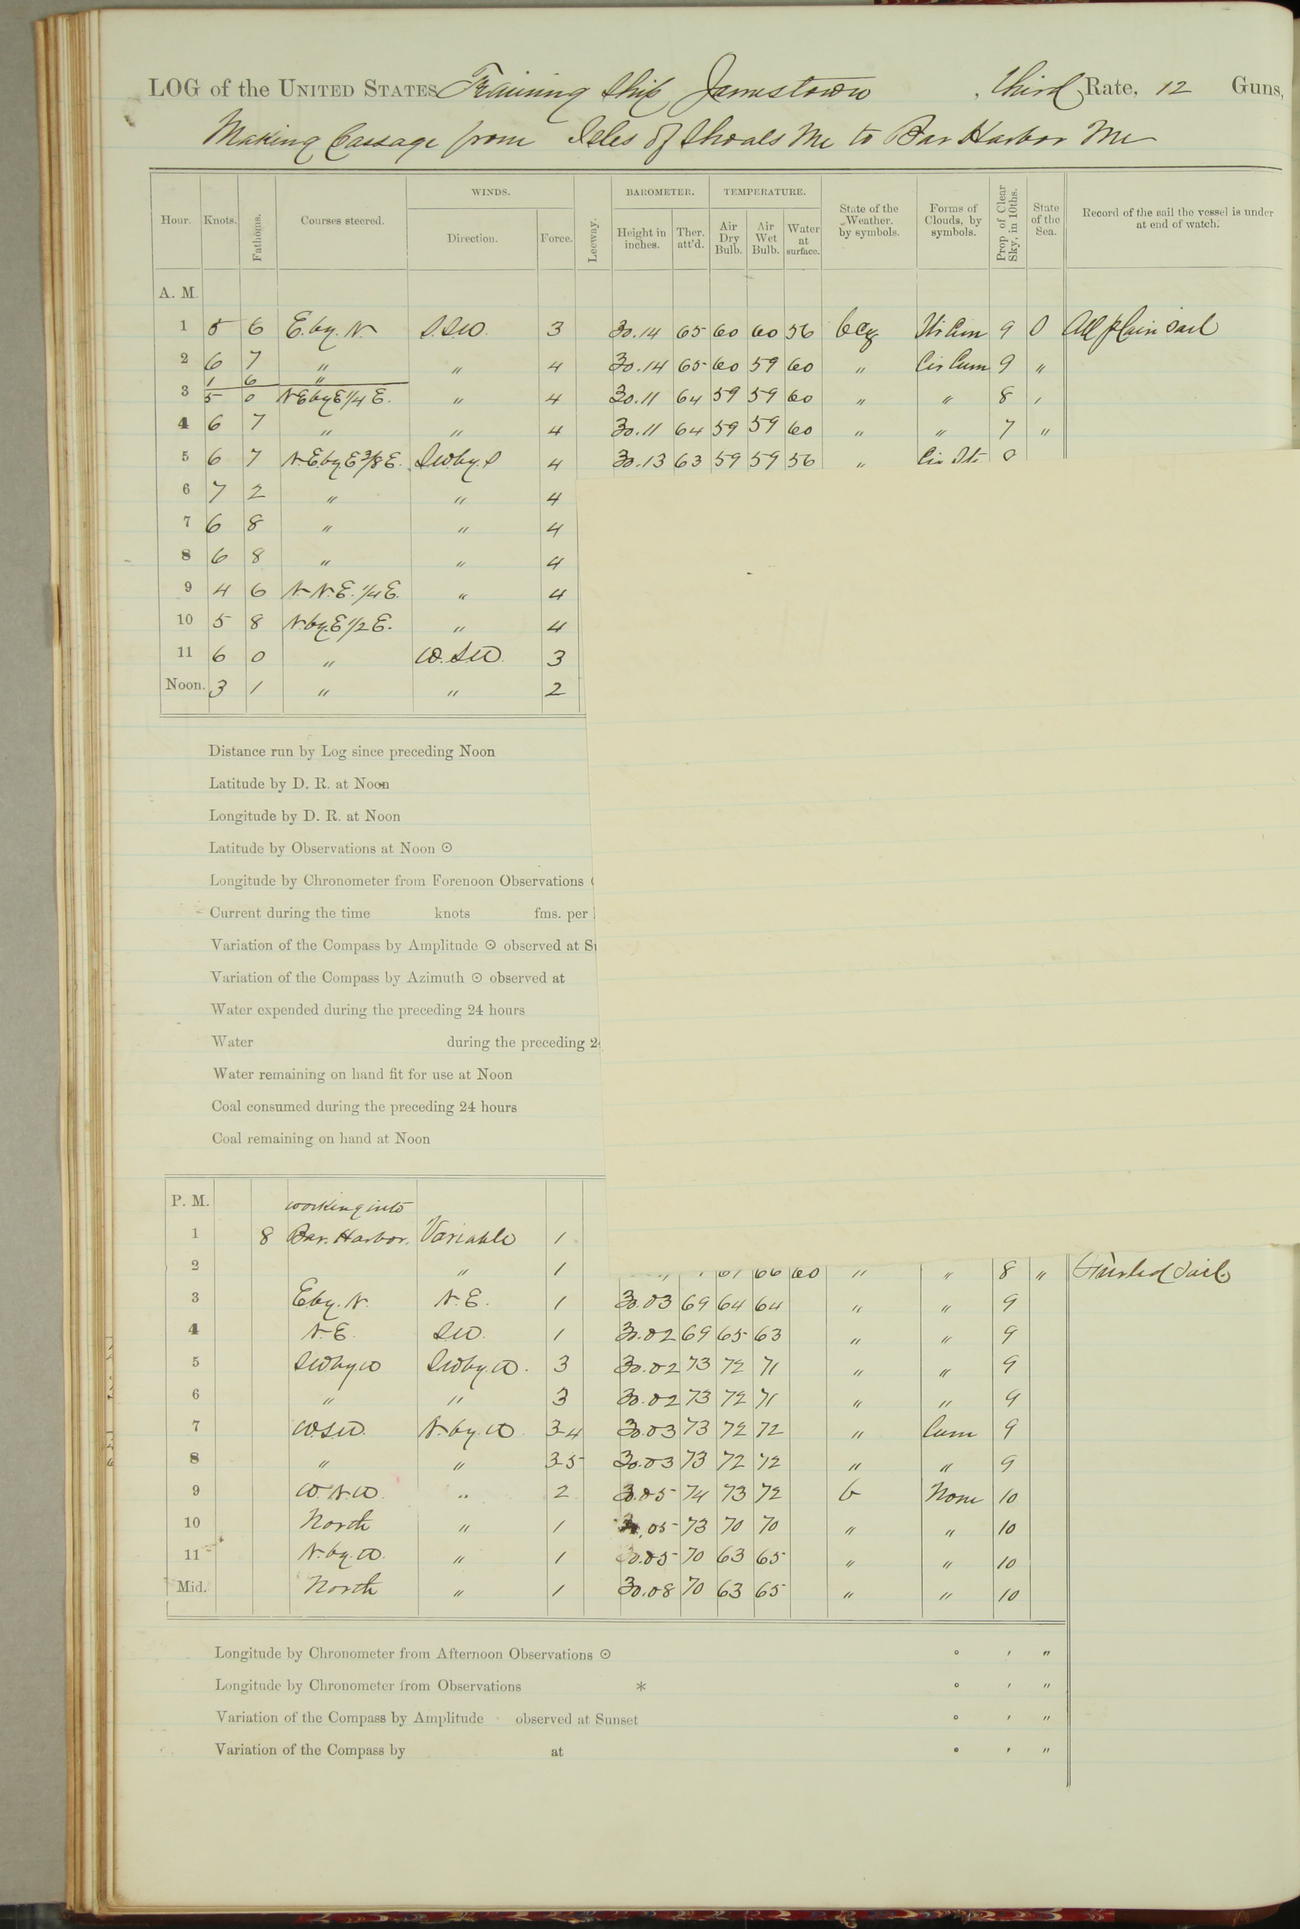 LOG of the UNITED STATES Training Ship Jamestown, Third Rate, 12 Guns,
Making Passage from Isles of Shoals Me to Bar Harbor Me
Hour. Knots. Fathoms. Courses steered. WINDS. Direction. Force. Leeway. BAROMETER. Height in inches. Ther. att'd. TEMPERATURE. Air Dry Bulb. Air Wet Bulb. Water at surface. State of the Weather. by symbols. Forms of Clouds, by symbols. Prop of Clear Sky, in 10ths. State of the Sea. Record of the sail the vessel is under at end of watch.
A. M.
1 5 6 E. by. N. S.S.W. 3 30.14 65 60 60 56 bcq Str Cum 9 0 All plain sail
2 6 7 " " 4 30.14 65 60 59 60 " Cir Cum 9 "
1 6 "
3 5 0 NEbyE1/4 E. " 4 30.11 64 59 59 60 " " 8 "
4 6 7 " " 4 30.11 64 59 59 60 " " 7 "
5 6 7 N.E.byE3/8E. SWby.S 4 30.13 63 59 59 56 " Cir Str
6 7 2 " " 4
7 6 8 " " 4
8 6 8 " " 4
9 4 6 N.N.E.1/4E. " 4
10 5 8 N.by.E1/2E. " 4
11 6 0 " W.SW. 3
Noon. 3 1 " " 2
Distance run by Log since preceding Noon
Latitude by D. R. at Noon
Longitude by D. R. at Noon
Latitude by Observations at Noon ☉
Longitude by Chronometer from Forenoon Observations
Current during the time knots fms. per
Variation of the Compass by Amplitude ☉ observed at Su
Variation of the Compass by Azimuth ☉ observed at
Water expended during the preceding 24 hours
Water during the preceding 24
Water remaining on hand fit for use at Noon
Coal consumed during the preceding 24 hours
Coal remaining on hand at Noon
P. M. working into
1 8 Bar. Harbor. Variable 1
2 " 1 66 60 " " 8 " Furled Sail.
3 Eby. N. N.E. 1 30.03 69 64 64 " " 9
4 N.E. SW. 1 30.02 69 65 63 " " 9
5 SWbyW SWby.W. 3 30.02 73 72 71 " " 9
6 " " 3 30.02 73 72 71 " " 9
7 W.SW. N.by.W. 3-4 30.03 73 72 72 " Cum 9
8 " " 3-5 30.03 73 72 72 " " 9
9 W.N.W. " 2 30.05 74 73 72 b None 10
10 North " 1 30.05 73 70 70 " " 10
11 N.by.W. " 1 30.05 70 63 65 " " 10
Mid. North " 1 30.08 70 63 65 " " 10
Longitude by Chronometer from Afternoon Observations ☉ ° ′ ″
Longitude by Chronometer from Observations * ° ′ ″
Variation of the Compass by Amplitude observed at Sunset ° ′ ″
Variation of the Compass by at ° ′ ″